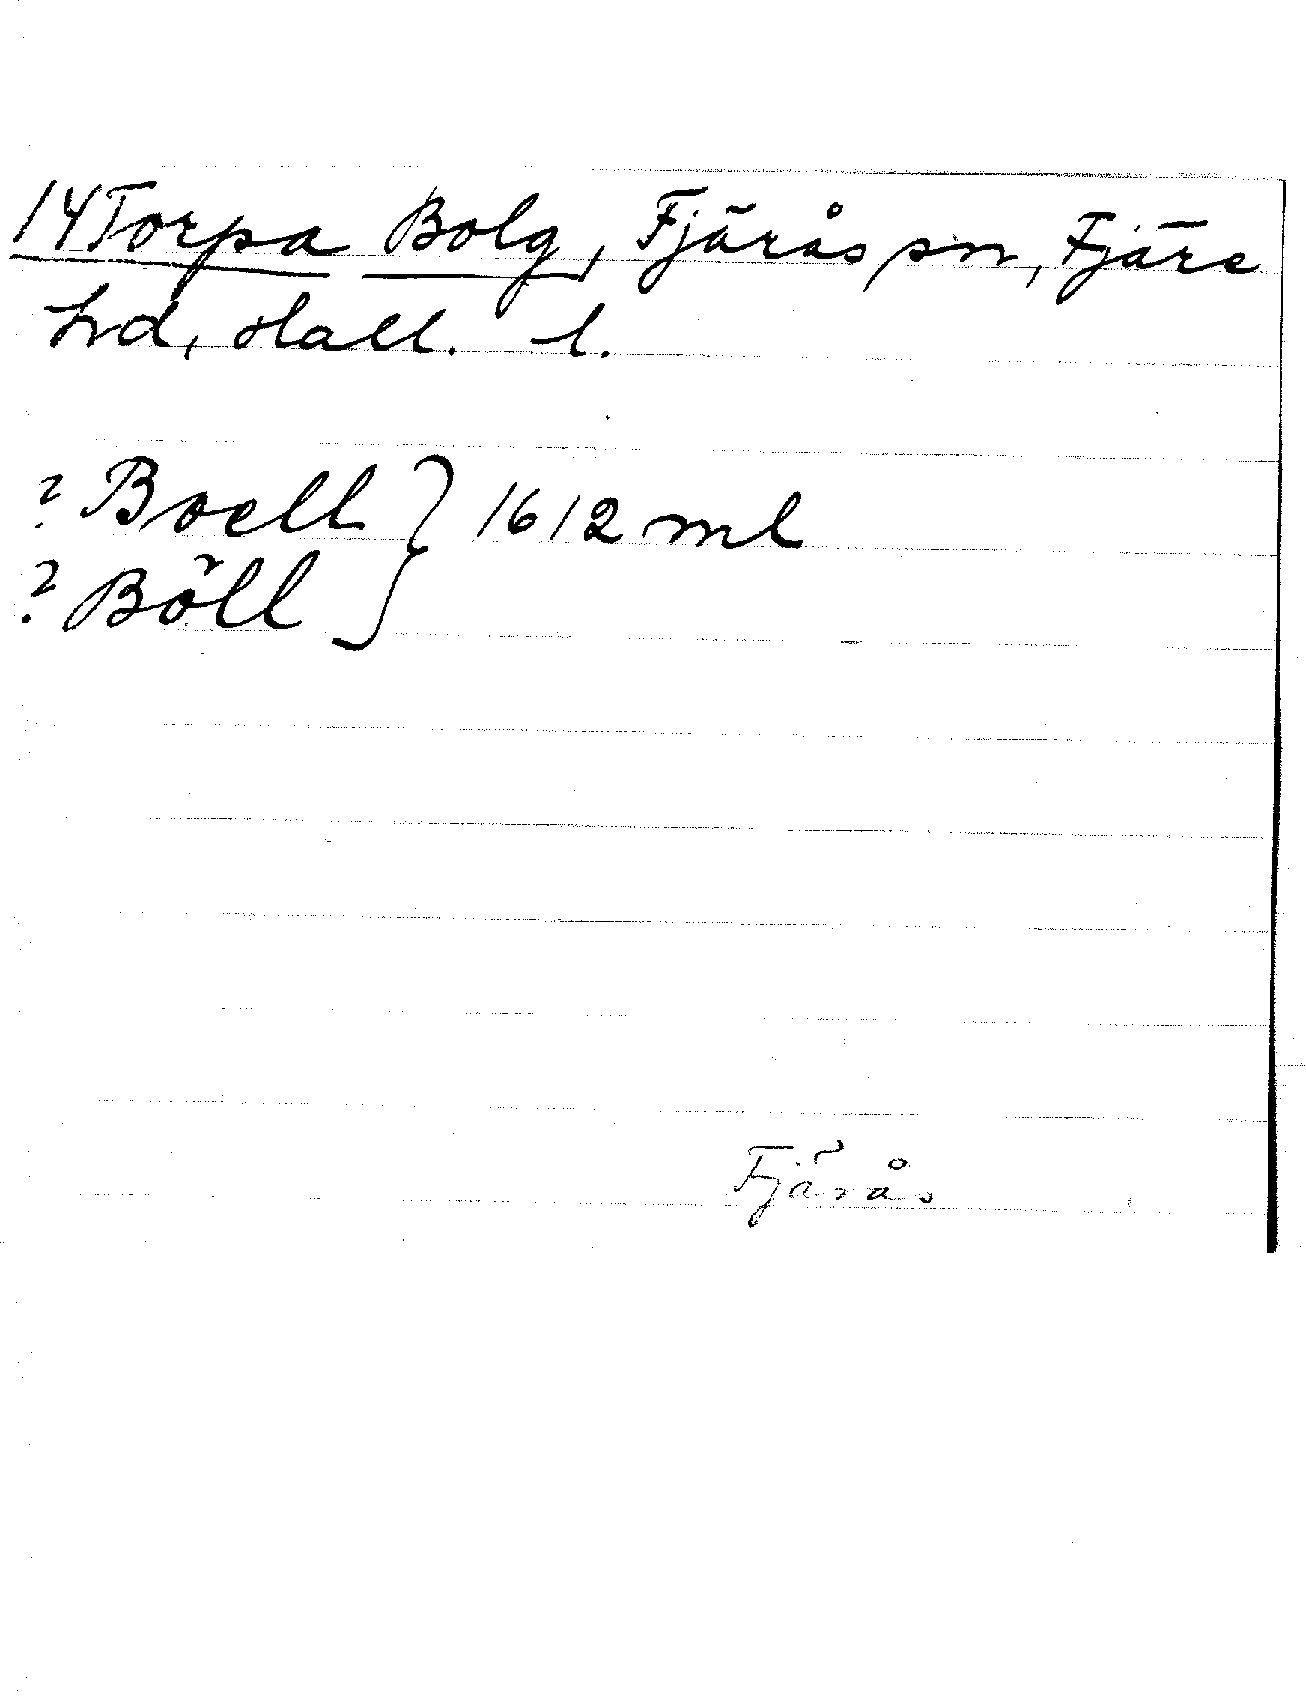 14 Torpa Bolg, Fjärås sn, Fjäre
hrd, Hall. l.
? Boell } 1612 ml
? Böll
Fjärås